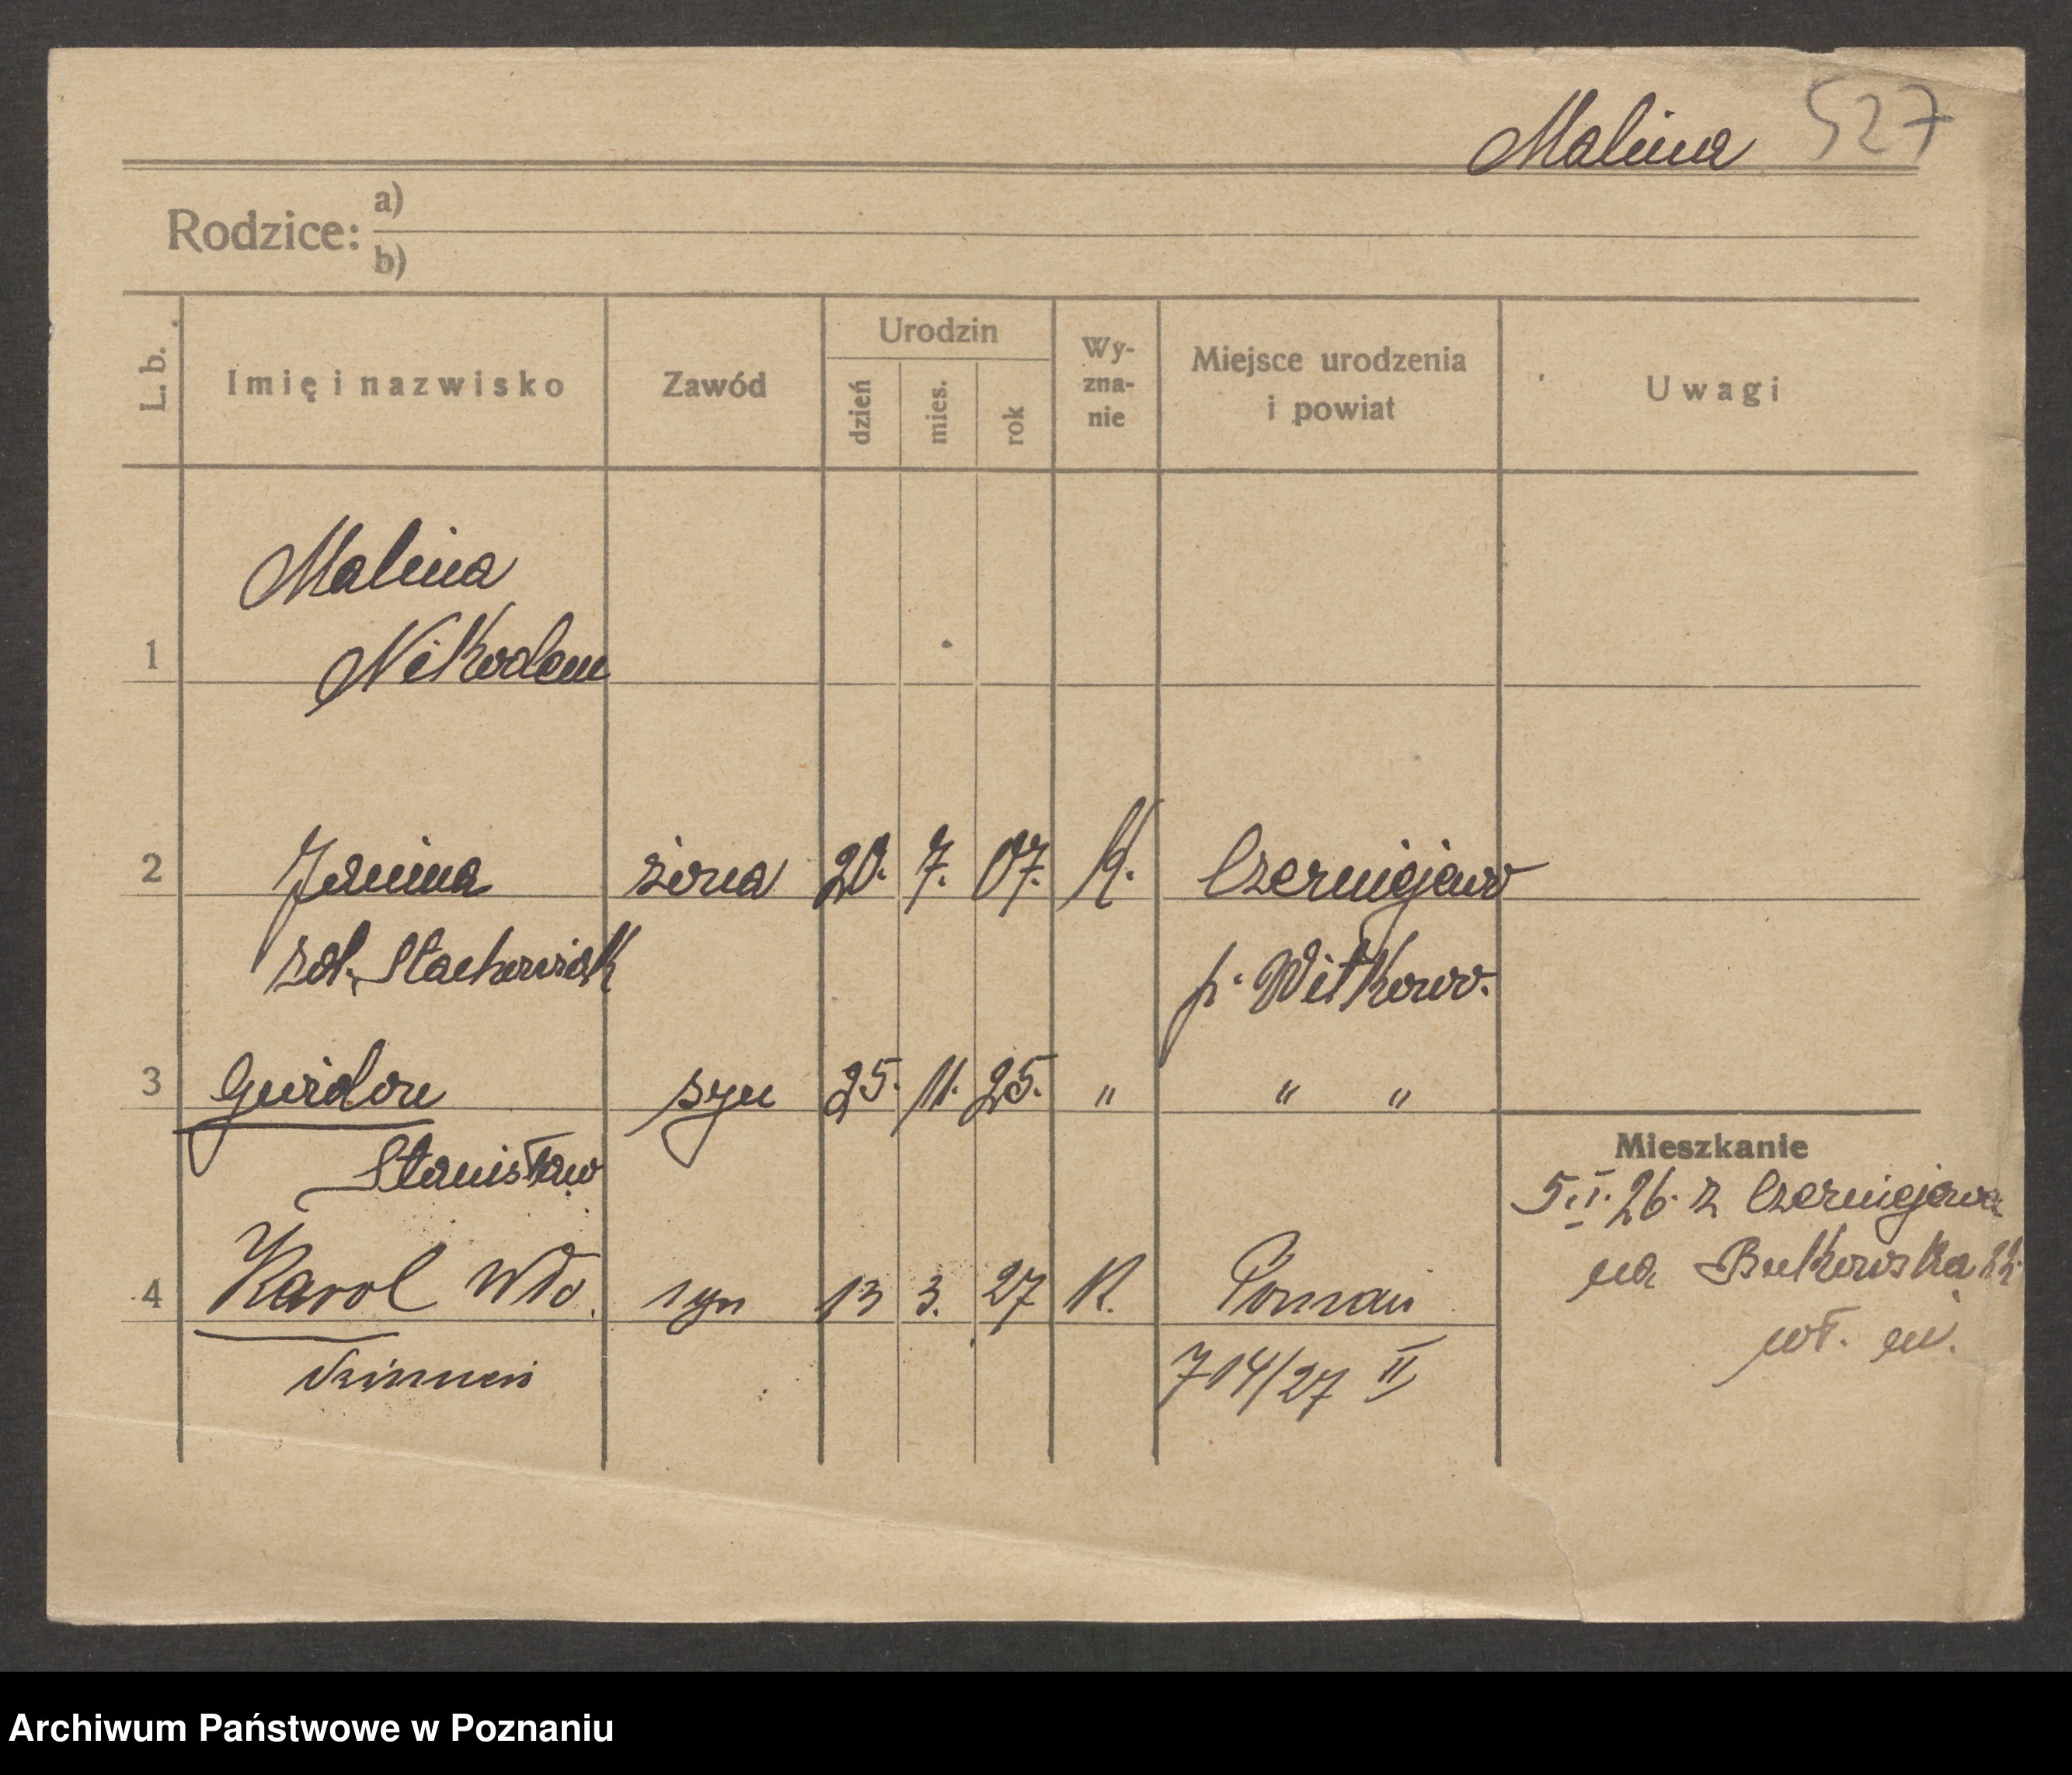 Malina 527
Rodzice: a)
b)
L. b. Imię i nazwisko Zawód Urodzin dzień mies. rok Wyznanie Miejsce urodzenia i powiat Uwagi
Malina
1 Nikodem
2 Janina żona 20. 7. 07. K. Czerniejewo
zd. Stachowiak p. Witkowo.
3 Gwidon syn 25. 11. 25. " " "
Stanisław
Mieszkanie
5.I.26. z Czerniejewa
4 Karol Wło. syn 13 3. 27 K. Poznań
na Bukowska
dzimierz 714/27 II
wł. m.
Archiwum Państwowe w Poznaniu